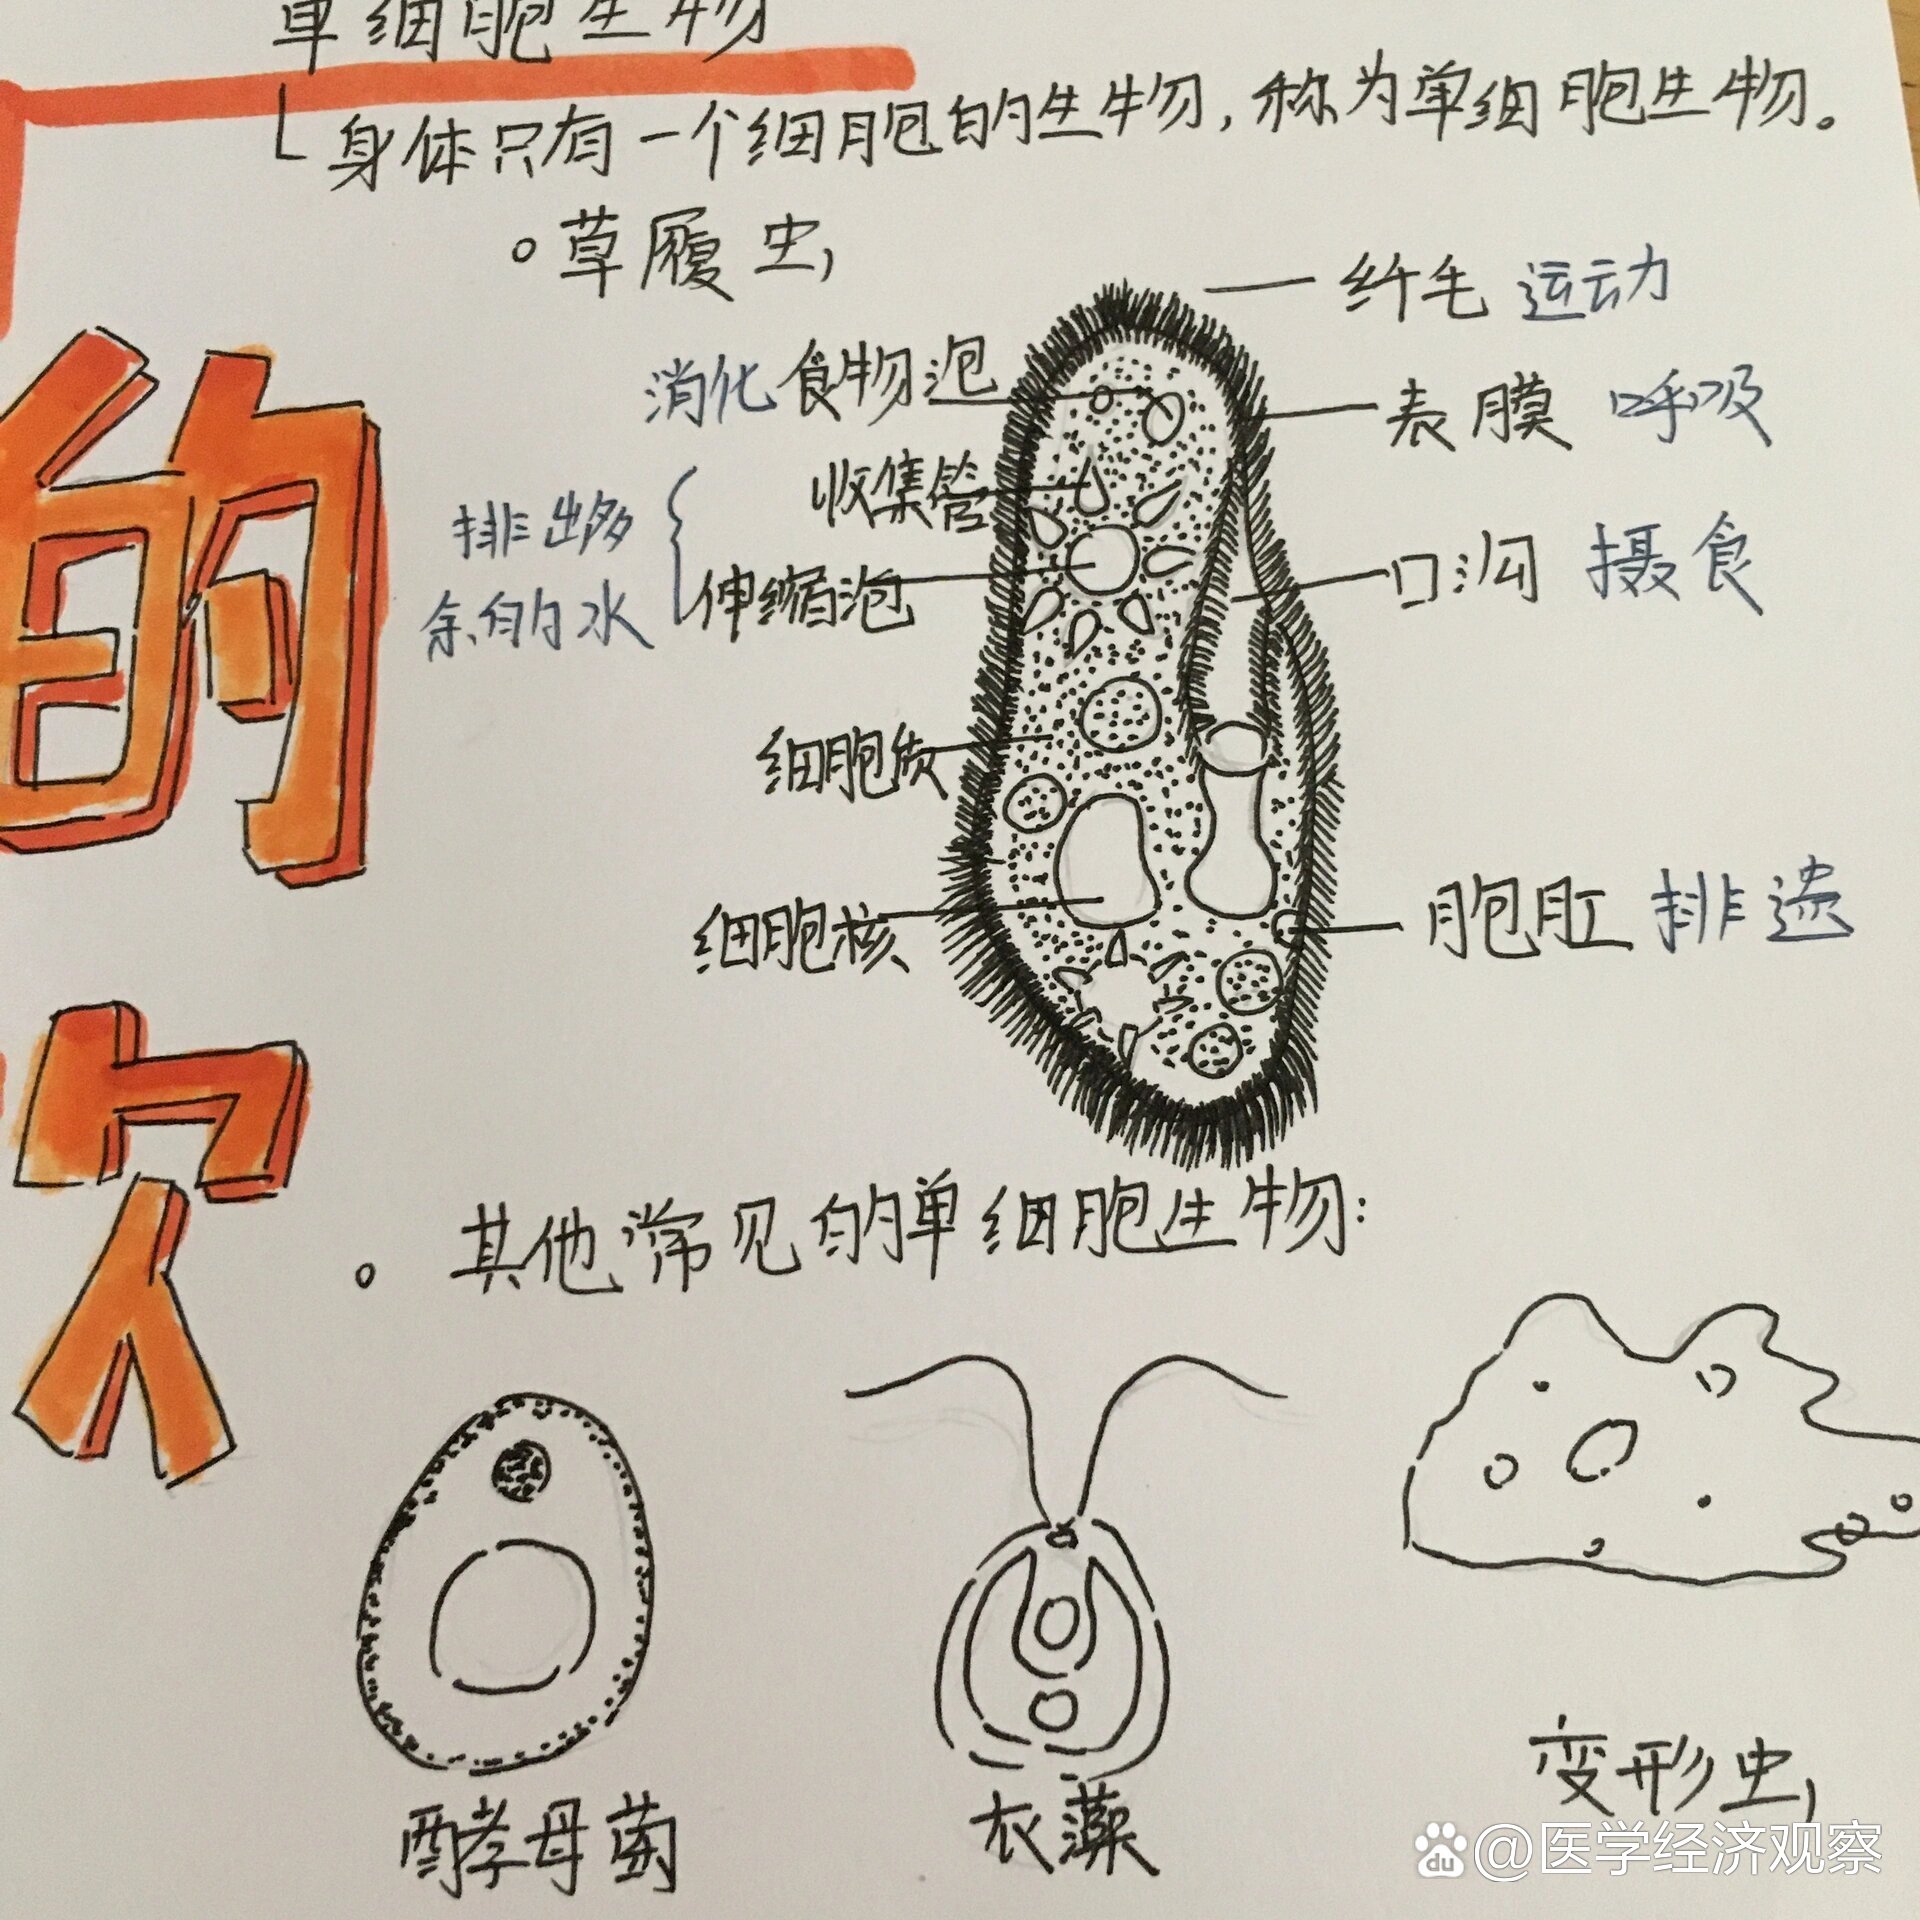 单细胞生物
身体只有一个细胞的生物，称为单细胞生物。
草履虫
纤毛 运动
消化 食物泡
表膜 呼吸
收集管
排出多
余的水
伸缩泡
口沟 摄食
细胞质
细胞核
胞肛 排遗
的
次
其他常见的单细胞生物：
酵母菌
衣藻
变形虫
du @医学经济观察